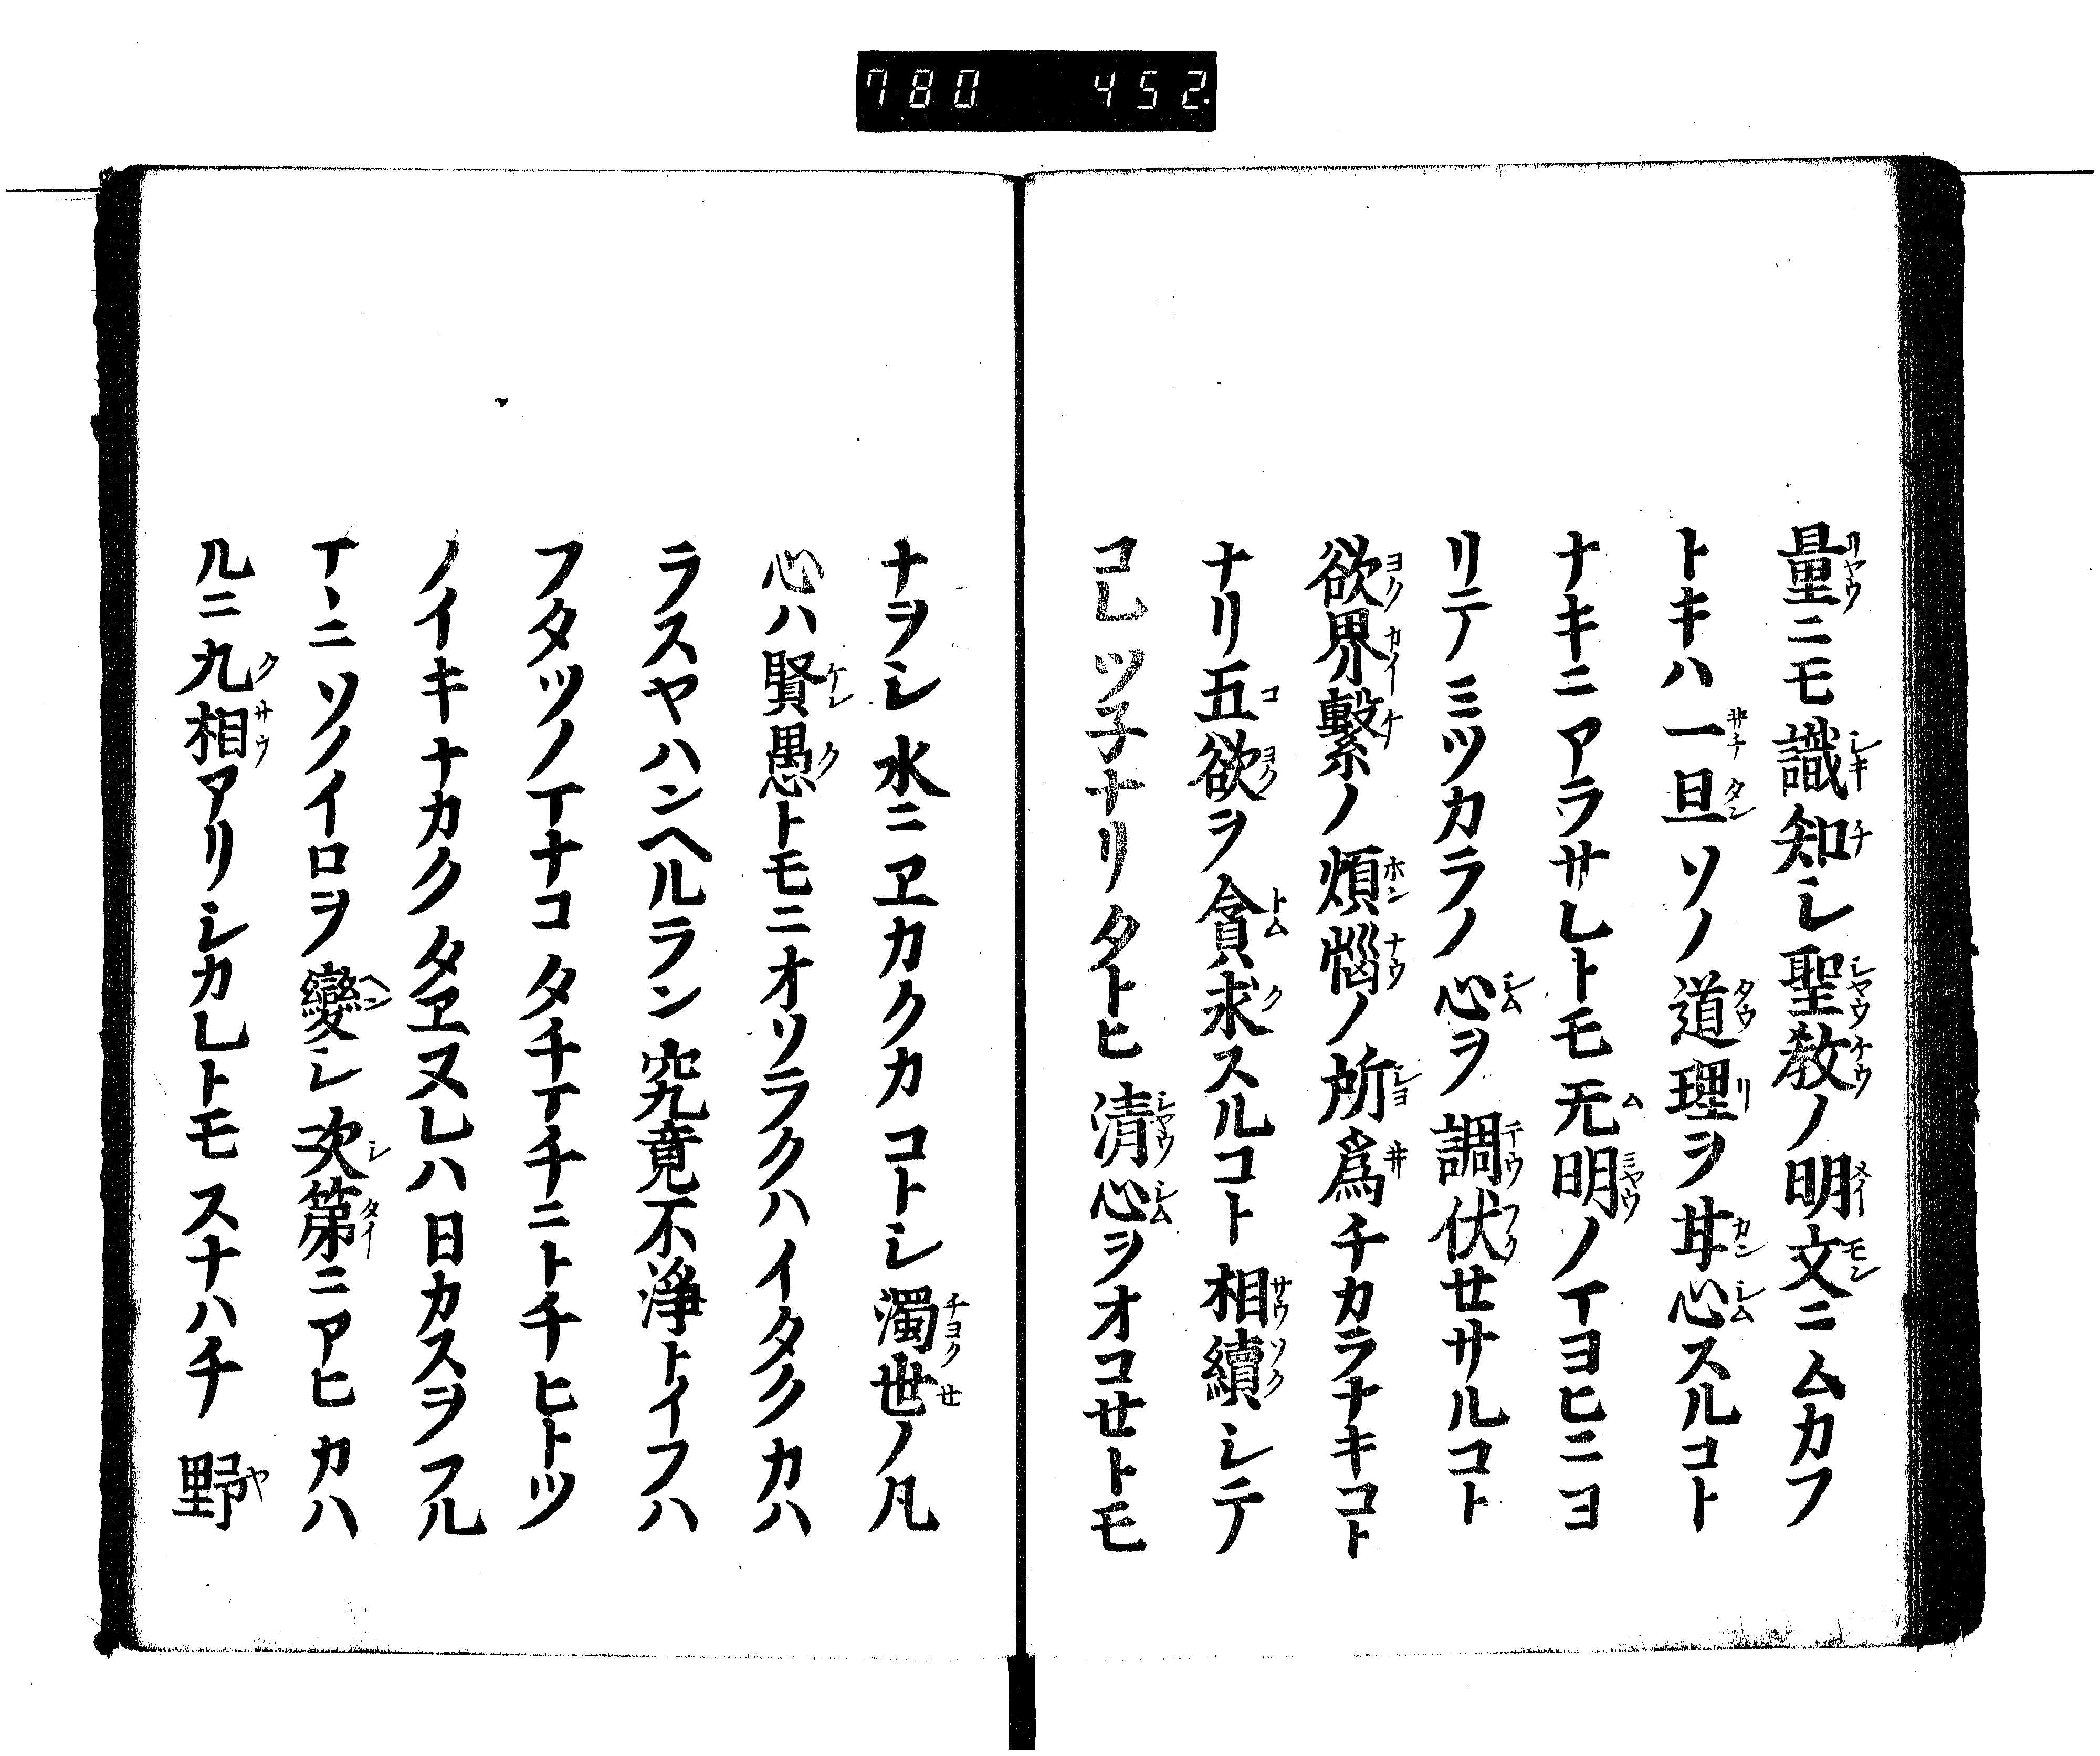 780 452
量ニモ識知シ聖教ノ明文ニムカフ
トキハ一旦ソノ道理ヲ甘心スルコト
ナキニアラサレトモ无明ノマヨヒニヨ
リテミツカラノ心ヲ調伏セサルコト
欲界繋ノ煩惱ノ所爲チカラナキコト
ナリ五欲ヲ貪求スルコト相續シテ
コレツ子ナリタトヒ清心ヲオコセトモ
ナヲシ水ニヱカクカコトシ濁世ノ凡
心ハ賢愚トモニオソラクハイタクカハ
ラスヤハンヘルラン究竟不淨トイフハ
フタツノマナコタチマチニトチヒトツ
ノイキナカクタヱヌレハ日カスヲフル
マヽニソノイロヲ變シ次第ニアヒカハ
ルニ九相アリシカレトモスナハチ野